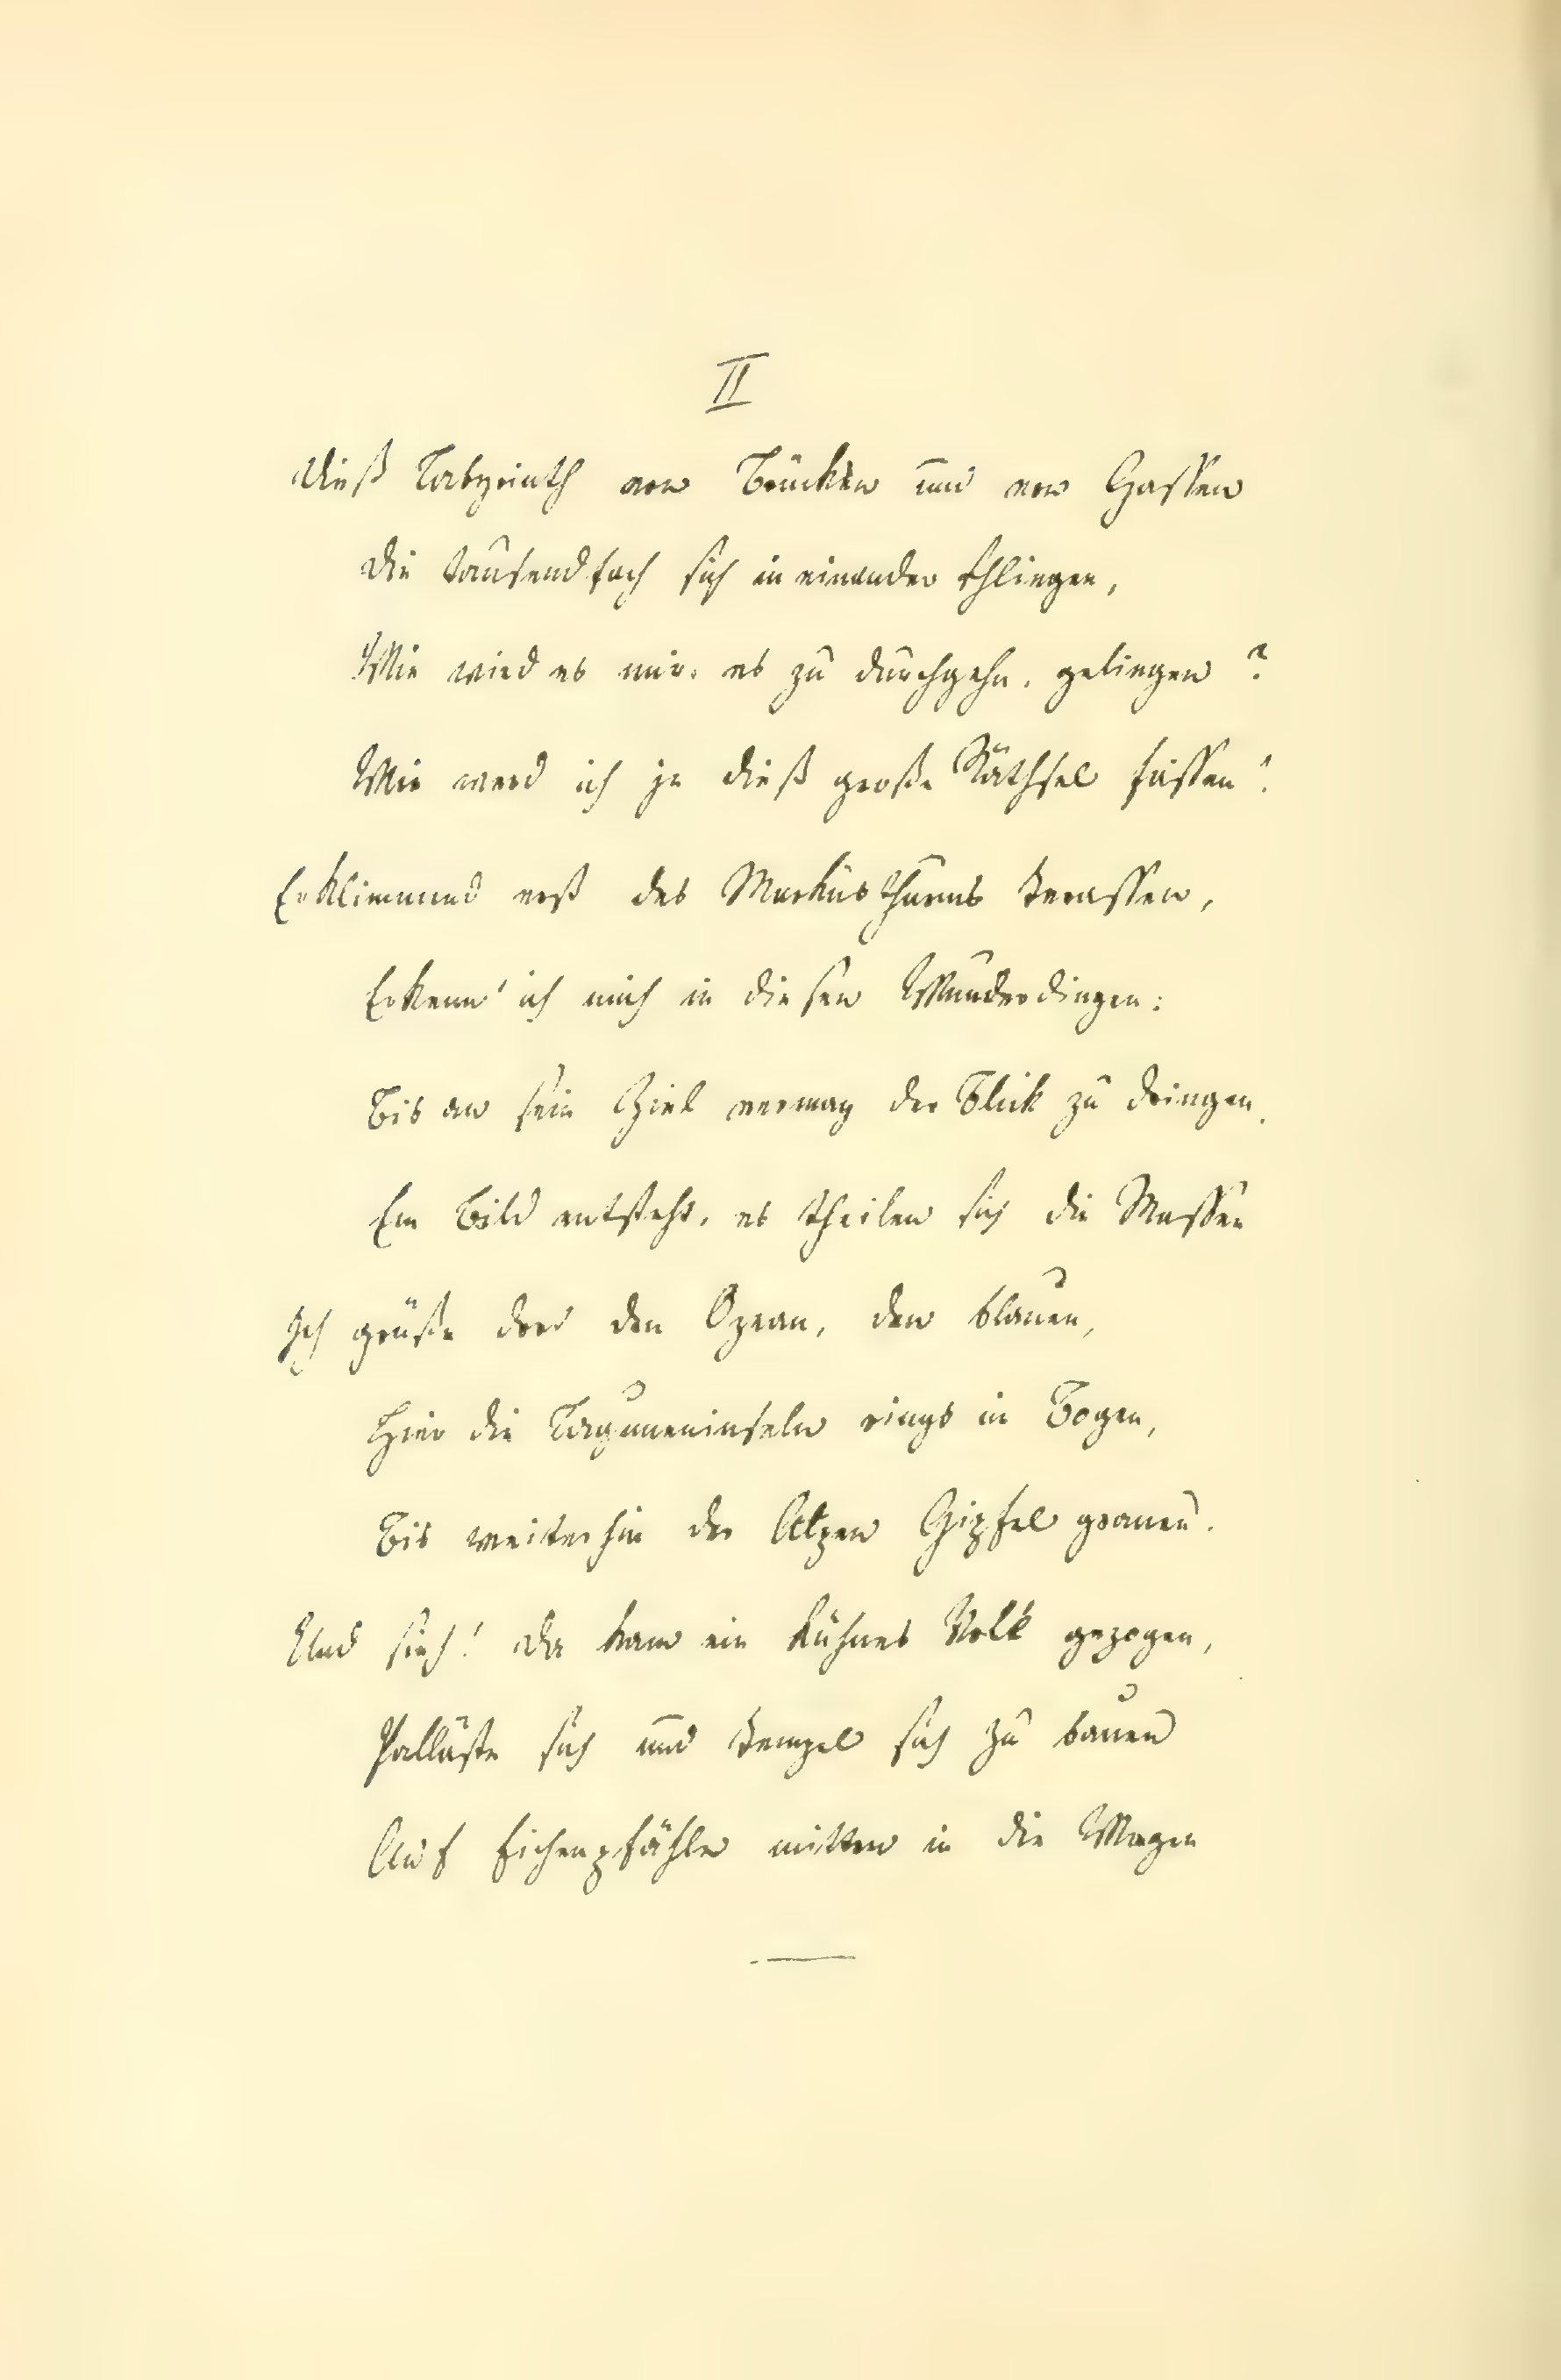 II
Dieß Labyrinth von Brücken und von Gassen
Die tausendfach sich in einander schlingen,
Wie wird es mir, es zu durchgehn, gelingen?
Wie werd ich je dieß große Räthsel fassen!
Erklimmend erst des Markusthurms Terassen,
Erkenn' ich mich in diesen Wunderdingen:
Bis an sein Ziel vermag der Blick zu dringen.
Ein Bild entsteht, es theilen sich die Massen
Ich grüße dort den Ozean, den blauen,
Hier die Laguneninseln rings in Bogen,
Bis weiterhin der Alpen Gipfel grauen.
Und sieh! da kam ein kühnes Volk gezogen,
Palläste sich und Tempel sich zu bauen
Auf Eichenpfähle mitten in die Wogen